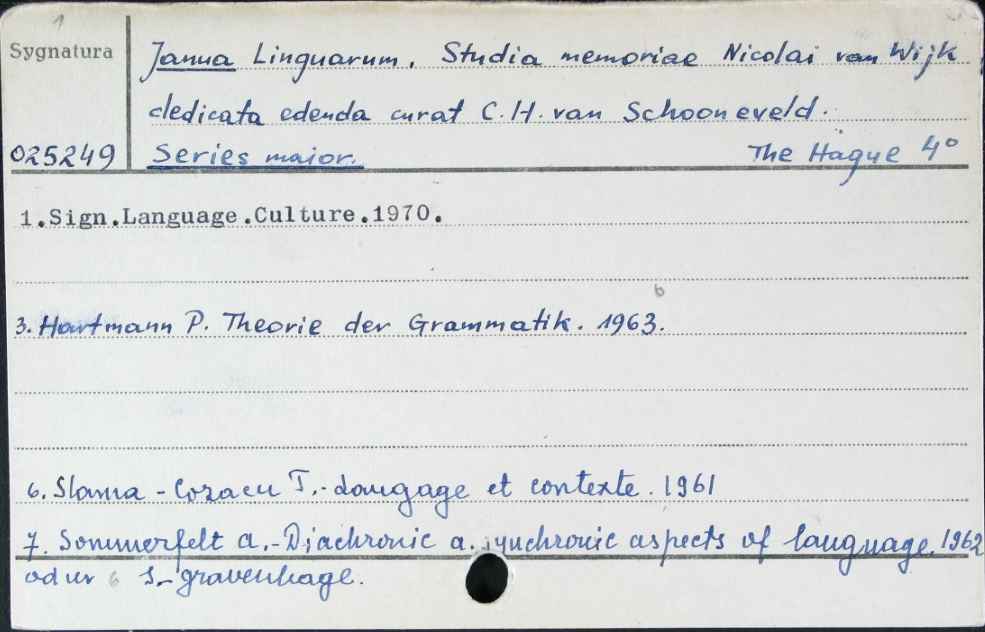 1
Sygnatura
Janua Linguarum. Studia memoriae Nicolai van Wijk
dedicata edenda curat C.H. van Schooneveld.
025249 Series maior. The Hague 4°
1.Sign.Language.Culture.1970.
6
3. Hartmann P. Theorie der Grammatik. 1963.
6. Slama - Cozacu T.- Langage et contexte. 1961
7. Sommerfelt a.- Diachronic a. synchronic aspects of language. 1962
od nr 6 S-gravenhage.